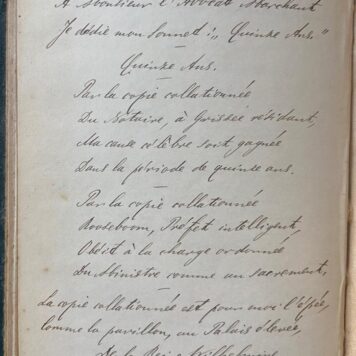 A Monsieur l'Avocat Marchant
Je dédie mon Sonnet: "Quinze Ans."
Quinze Ans.
Par la copie collationnée
Du Notaire, à Grissée résidant,
Ma cause célèbre soit gagnée
Dans la période de quinze ans.
Par la copie collationnée
Rooseboom, Préfet intelligent,
Obéit à la charge ordonnée
Du Ministre comme au sacrement,
La copie collationnée est pour moi l'épée,
Comme le pavillon, au Palais élevée,
de la